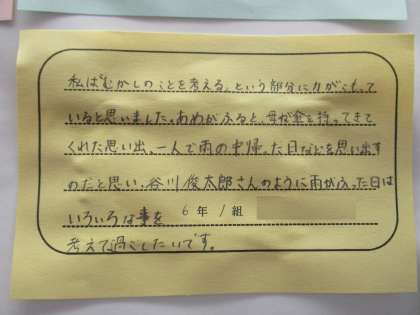 私は「むかしのことを考える」という部分に力がこもって
いると思いました。あめがふると、母が傘を持ってきて
くれた思い出。一人で雨の中帰った日などを思い出す
のだと思い、谷川俊太郎さんのように雨がふった日は
いろいろな事を
6年1組
考えて過ごしたいです。